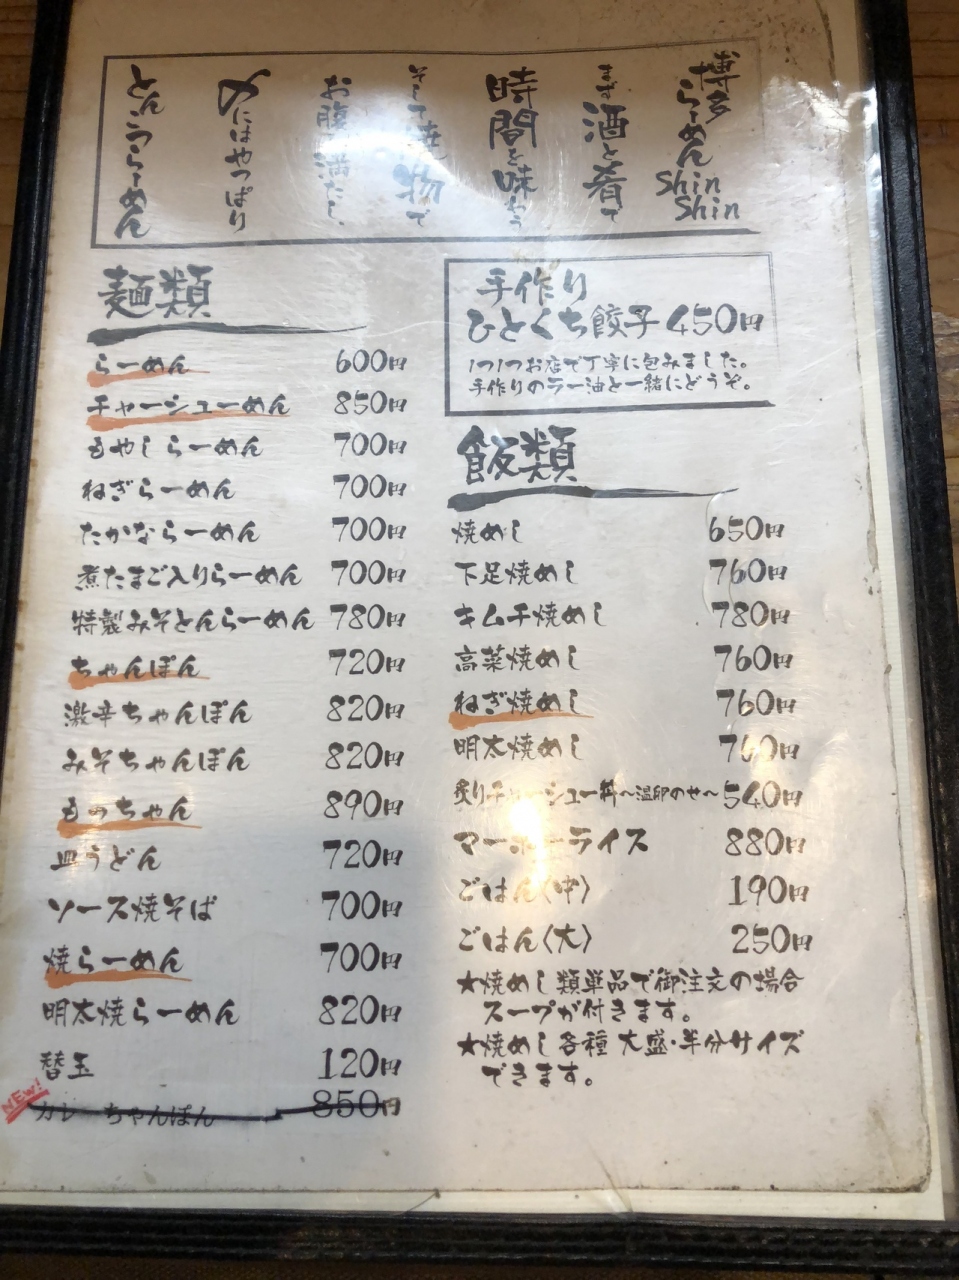 博多らーめん ShinShin
まずは酒と肴で
時間を味わう
そして焼物で
お腹を満たし、
〆にはやっぱり
とんこつらーめん
麺類
らーめん 600円
チャーシューめん 850円
もやしらーめん 700円
ねぎらーめん 700円
たかならーめん 700円
煮たまご入りらーめん 700円
特製みそとんらーめん 780円
ちゃんぽん 720円
激辛ちゃんぽん 820円
みそちゃんぽん 820円
もつちゃん 890円
皿うどん 720円
ソース焼そば 700円
焼らーめん 700円
明太焼らーめん 820円
替玉 120円
NEW! カレーちゃんぽん 850円
手作り
ひとくち餃子 450円
1つ1つお店で丁寧に包みました。
手作りのラー油と一緒にどうぞ。
飯類
焼めし 650円
下足焼めし 760円
キムチ焼めし 780円
高菜焼めし 760円
ねぎ焼めし 760円
明太焼めし 760円
炙りチャーシュー丼～温卵のせ～ 540円
マーボーライス 880円
ごはん〈中〉 190円
ごはん〈大〉 250円
★焼めし類単品で御注文の場合
スープが付きます。
★焼めし各種 大盛・半分サイズ
できます。